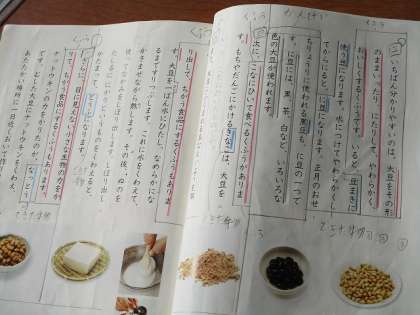 いちばん分かりやすいのは、大豆をその形
のままいったり、にたりして、やわらかく、
おいしくするくふうです。いると、豆まきに
使う豆になります。水につけてやわらかくし
てからにると、に豆になります。正月のおせ
ちりょうりに使われる黒豆も、に豆の一つで
す。に豆には、黒、茶、白など、いろいろな
色の大豆が使われます。
次に、こなにひいて食べるくふうがありま
す。もちやだんごにかけるきなこは、大豆を
り出して、ちがう食品にするくふうもありま
す。大豆を一ばん水にひたし、なめらかにな
るまですりつぶします。これに水をくわえて、
かきまぜながら熱します。その後、ぬのを
使って中身をしぼり出します。しぼり出し
たしるににがりというものをくわえると、
かたまって、とうふになります。
さらに、目に見えない小さな生物の力をか
りて、ちがう食品にするくふうもあります。
ナットウキンの力をかりたのが、なっとうで
す。むした大豆にナットウキンをくわえ、
あたたかい場所に一日近くおいて作
くふう